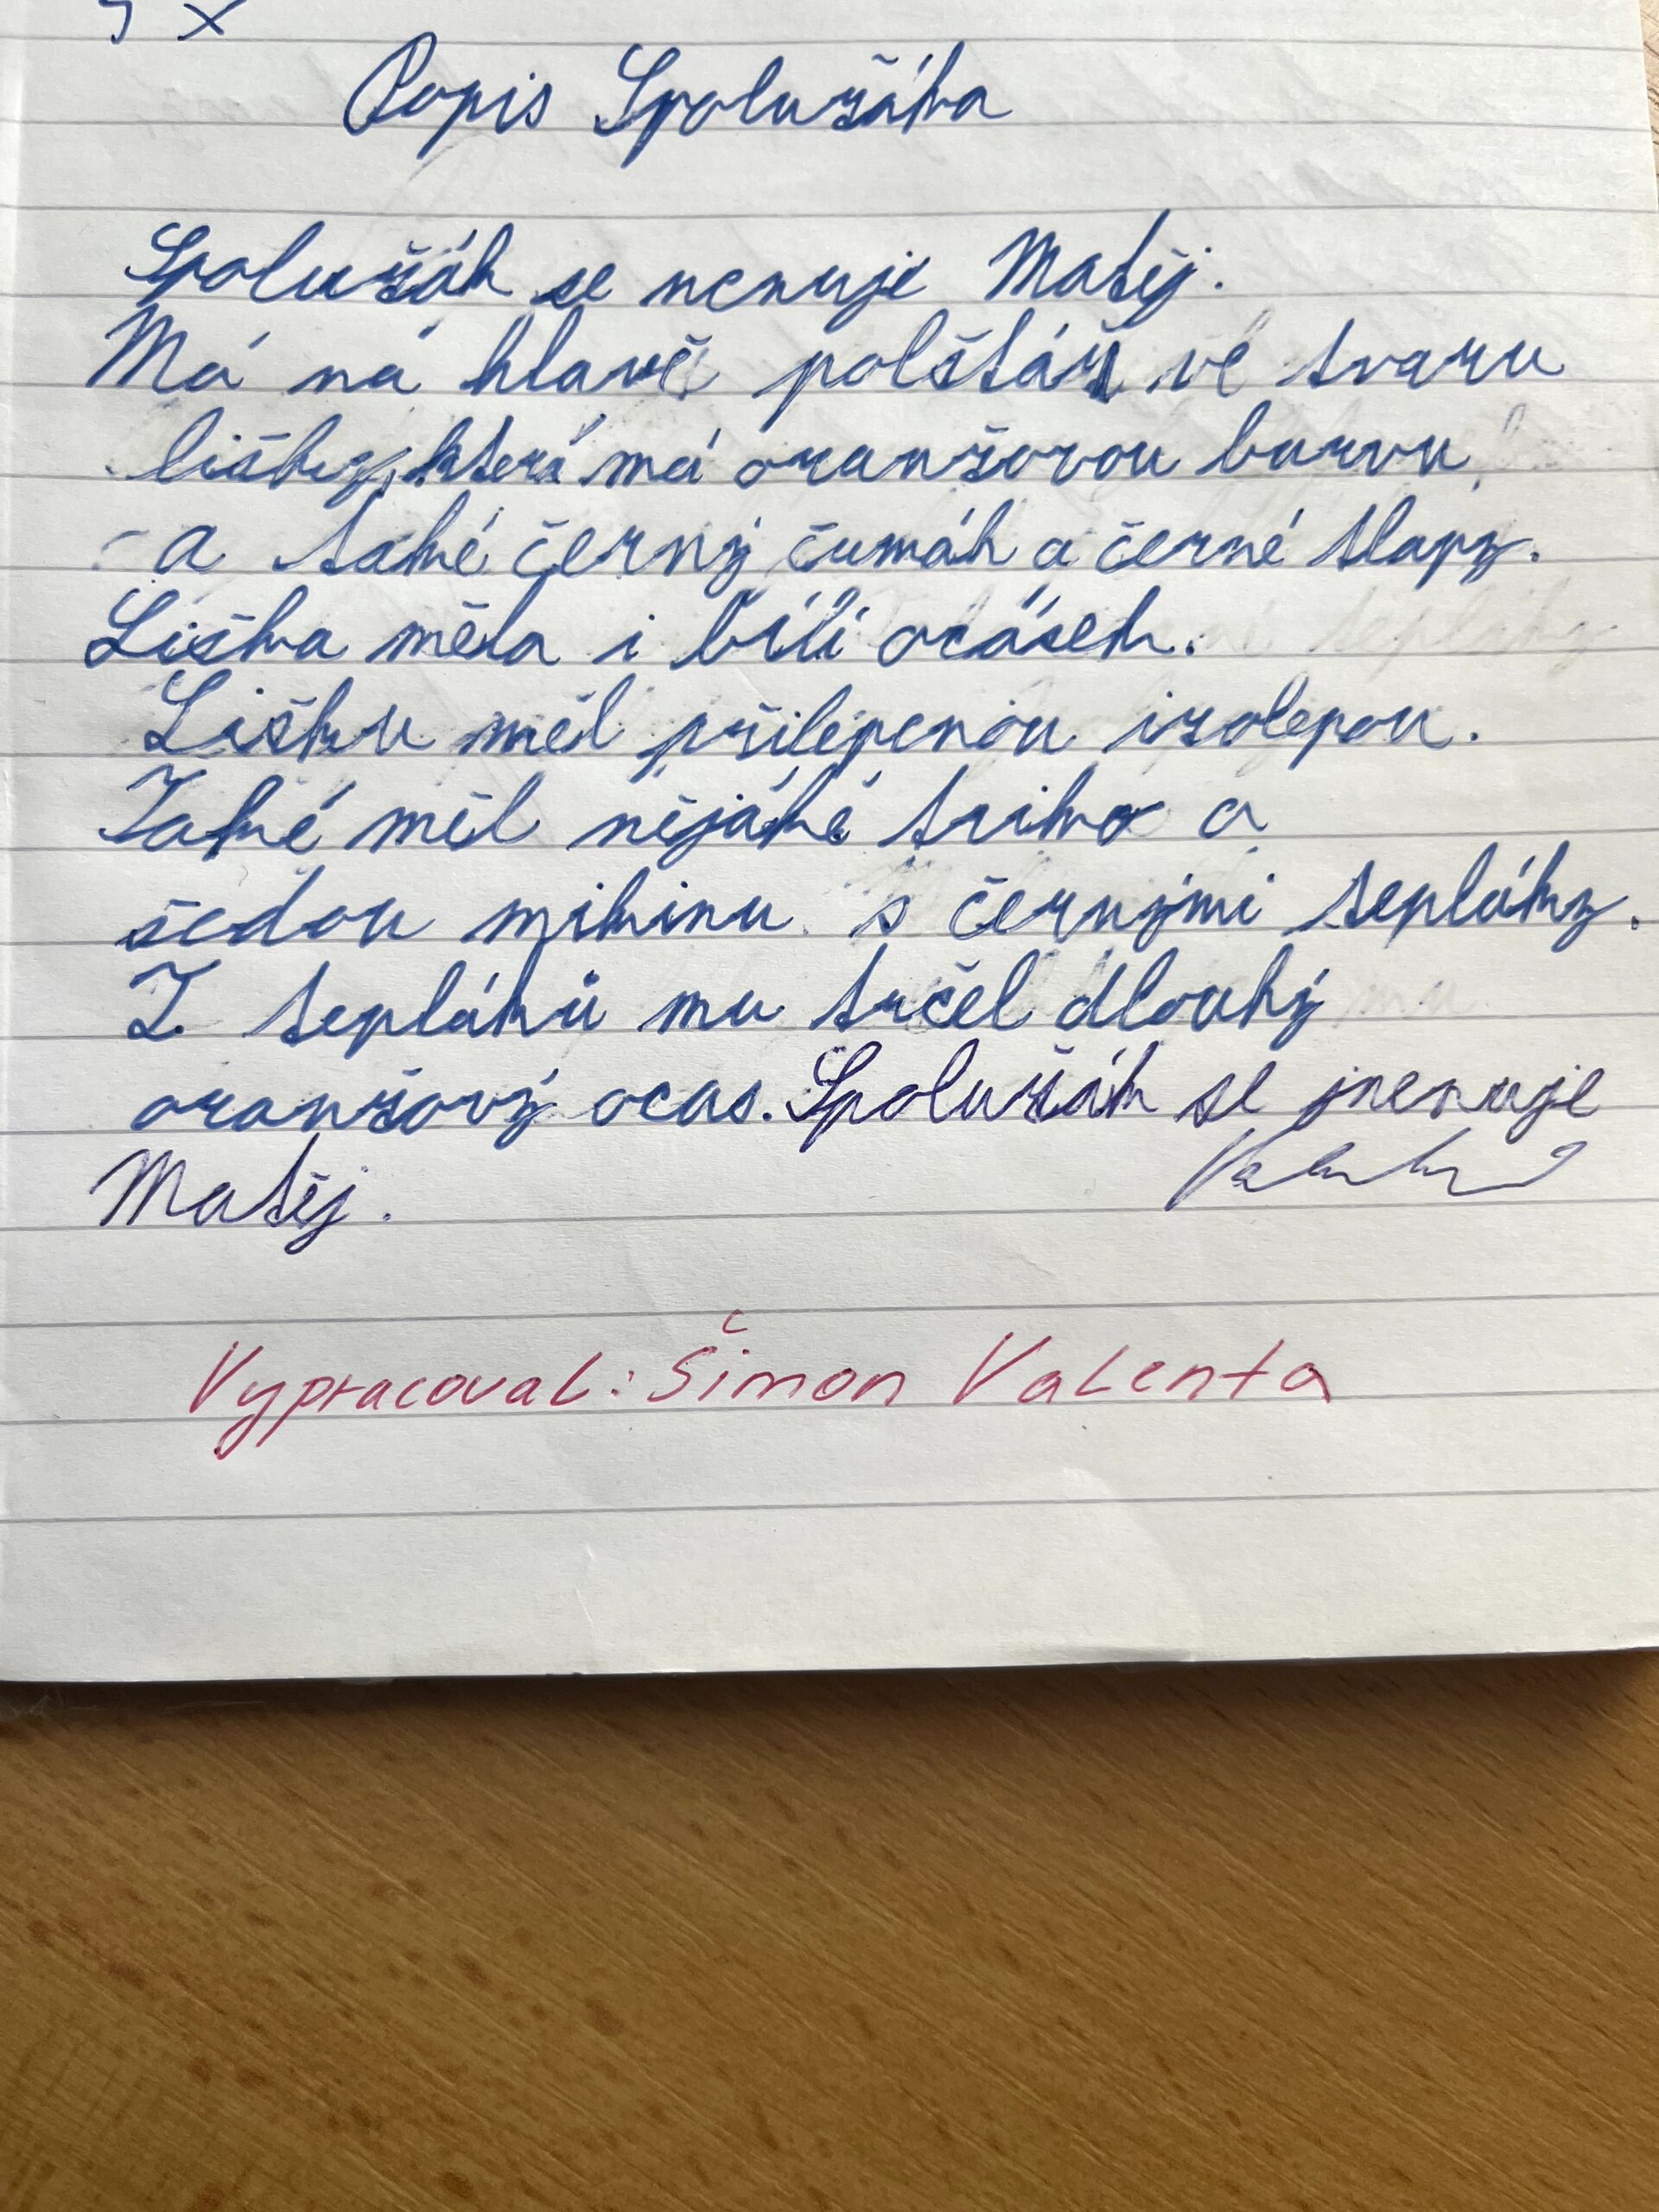 Popis Spolužáka
Spolužák se nenuje Matěj.
Má na hlavě polštář ve tvaru
lišky, která má oranžovou barvu
a také černý čumák a černé tlapy.
Liška měla i bílí ocásek.
Lišku měl přilepenou izolepou.
Také měl nějáké triko a
šedou mikinu s černými tepláky.
Z tepláků mu trčel dlouhý
oranžový ocas. Spolužák se jnenuje
Matěj.
Vypracoval: Šimon Valenta